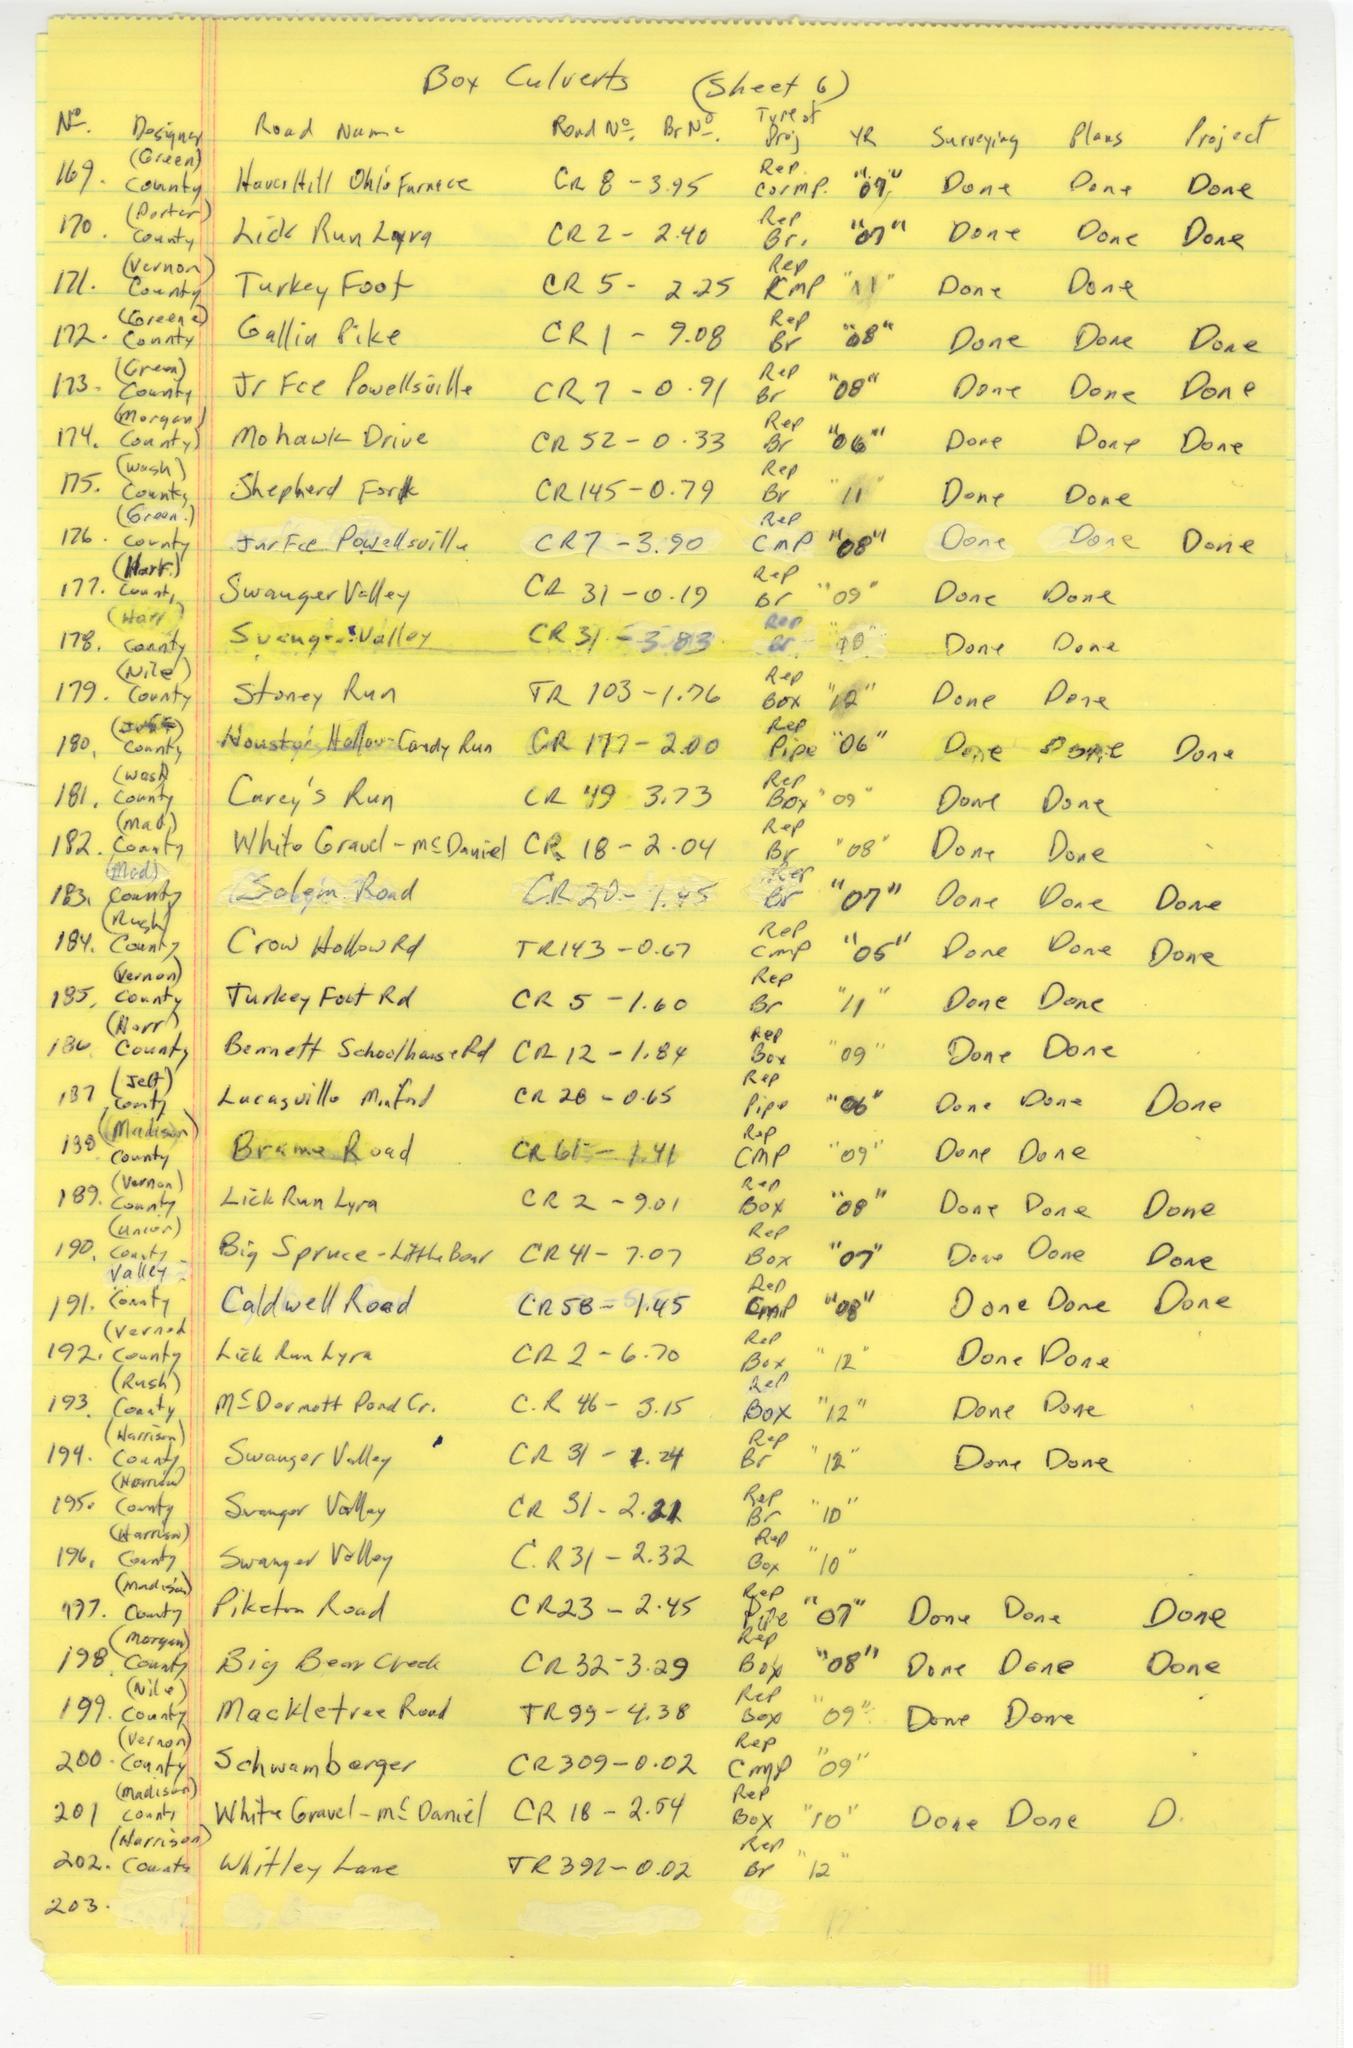 Box Culverts (Sheet 6)
No. Designer Road Name Road No. Br No. Type of Proj YR Surveying Plans Project
169. (Green) County HaverHill Ohio Furnace CR 8 - 3.95 Rep. Cormp. "07" Done Done Done
170. (Porter) County Lick Run Lyra CR 2 - 2.40 Rep Br. "07" Done Done Done
171. (Vernon) County Turkey Foot CR 5 - 2.25 Rep CMP "11" Done Done
172. (Greene) County Gallia Pike CR 1 - 9.08 Rep Br "08" Done Done Done
173. (Green) County Jr Fce Powellsville CR 7 - 0.91 Rep Br "08" Done Done Done
174. (Morgan) County Mohawk Drive CR 52 - 0.33 Rep Br "06" Done Done Done
175. (Wash) County Shepherd Fork CR 145 - 0.79 Rep Br "11" Done Done
176. (Green.) County Jnr Fce Powellsville CR 7 - 3.90 Rep CMP "08" Done Done Done
177. (Harr.) County Swauger Valley CR 31 - 0.19 Rep Br "09" Done Done
178. (Harr) County Swauger Valley CR 31 - 3.83 Rep Br "10" Done Done
179. (Nile) County Stoney Run TR 103 - 1.76 Rep Box "12" Done Done
180. County Hollow-Candy Run CR 177 - 2.00 Rep Pipe "06" Done Done Done
181. (Wash) County Carey's Run CR 49 3.73 Rep Box "09" Done Done
182. (Mad) County White Gravel - McDaniel CR 18 - 2.04 Rep Br "08" Done Done
183. (Mad) County Salem Road CR 20 - 1.45 Rep Br "07" Done Done Done
184. (Rush) County Crow Hollow Rd TR 143 - 0.67 Rep CMP "05" Done Done Done
185. (Vernon) County Turkey Foot Rd CR 5 - 1.60 Rep Br "11" Done Done
186. (Harr) County Bennett Schoolhouse Rd CR 12 - 1.84 Rep Box "09" Done Done
187 (Jeff) County Lucasville Minford CR 28 - 0.65 Rep Pipe "06" Done Done Done
188 (Madison) County Brame Road CR 61 - 1.41 Rep CMP "09" Done Done
189. (Vernon) County Lick Run Lyra CR 2 - 9.01 Rep Box "08" Done Done Done
190. (Union) County Big Spruce - Little Bear CR 41 - 7.07 Rep Box "07" Done Done Done
191. Valley County Caldwell Road CR 58 - 1.45 Rep CMP "08" Done Done Done
192. (Vernon County Lick Run Lyra CR 2 - 6.70 Rep Box "12" Done Done
193. (Rush) County McDermott Pond Cr. C.R 46 - 3.15 Rep Box "12" Done Done
194. (Harrison) County Swauger Valley CR 31 - 1.24 Rep Br "12" Done Done
195. (Harrison) County Swauger Valley CR 31 - 2.21 Rep Br "10"
196. (Harrison) County Swauger Valley C.R 31 - 2.32 Rep Box "10"
197. (Madison) County Piketon Road CR 23 - 2.45 Rep Pipe "07" Done Done Done
198. (Morgan) County Big Bear Creek CR 32 - 3.29 Rep Box "08" Done Done Done
199. (Nile) County Mackletree Road TR 99 - 4.38 Rep Box "09" Done Done
200. (Vernon) County Schwamberger CR 309 - 0.02 Rep CMP "09"
201 (Madison) County White Gravel - McDaniel CR 18 - 2.54 Rep Box "10" Done Done D.
202. (Harrison) County Whitley Lane TR 392 - 0.02 Rep Br "12"
203.